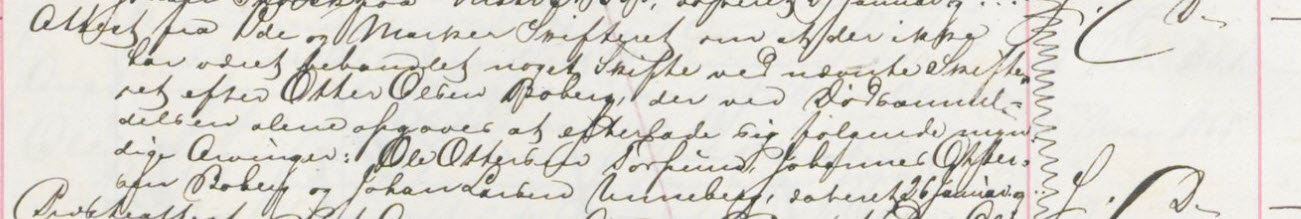 Attest fra Ide og Marker Skifteret om at der ikke
har været behandlet noget Skifte ved nævnte Skifte-
ret efter Otter Olsen Boberg, der ved Dødsanmel-
delsen alene opgaves at efterlade sig følgende myn-
dige Arvinger: Ole Ottersen Torpum, Johannes Otter-
sen Boberg og Johan Larsen Unneberg, dateret 26 Januar